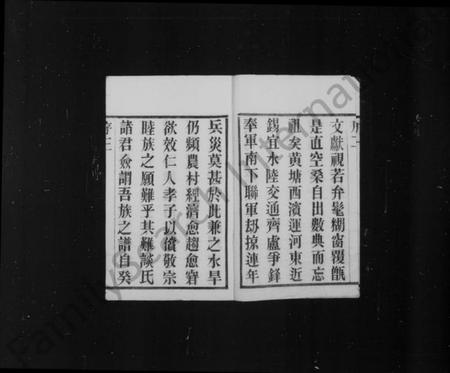 序二
文獻視若弁髦糊窗覆瓿
是直空桑自出數典而忘
祖矣黃塘西濱運河東近
錫宜水陸交通齊盧爭鋒
奉軍南下聯軍刼掠連年
兵災莫甚於此兼之水旱
仍頻農村經濟愈趨愈窘
欲效仁人孝子以償敬宗
睦族之願難乎其難談氏
諸君僉謂吾族之譜自癸
序三
FamilySearch International